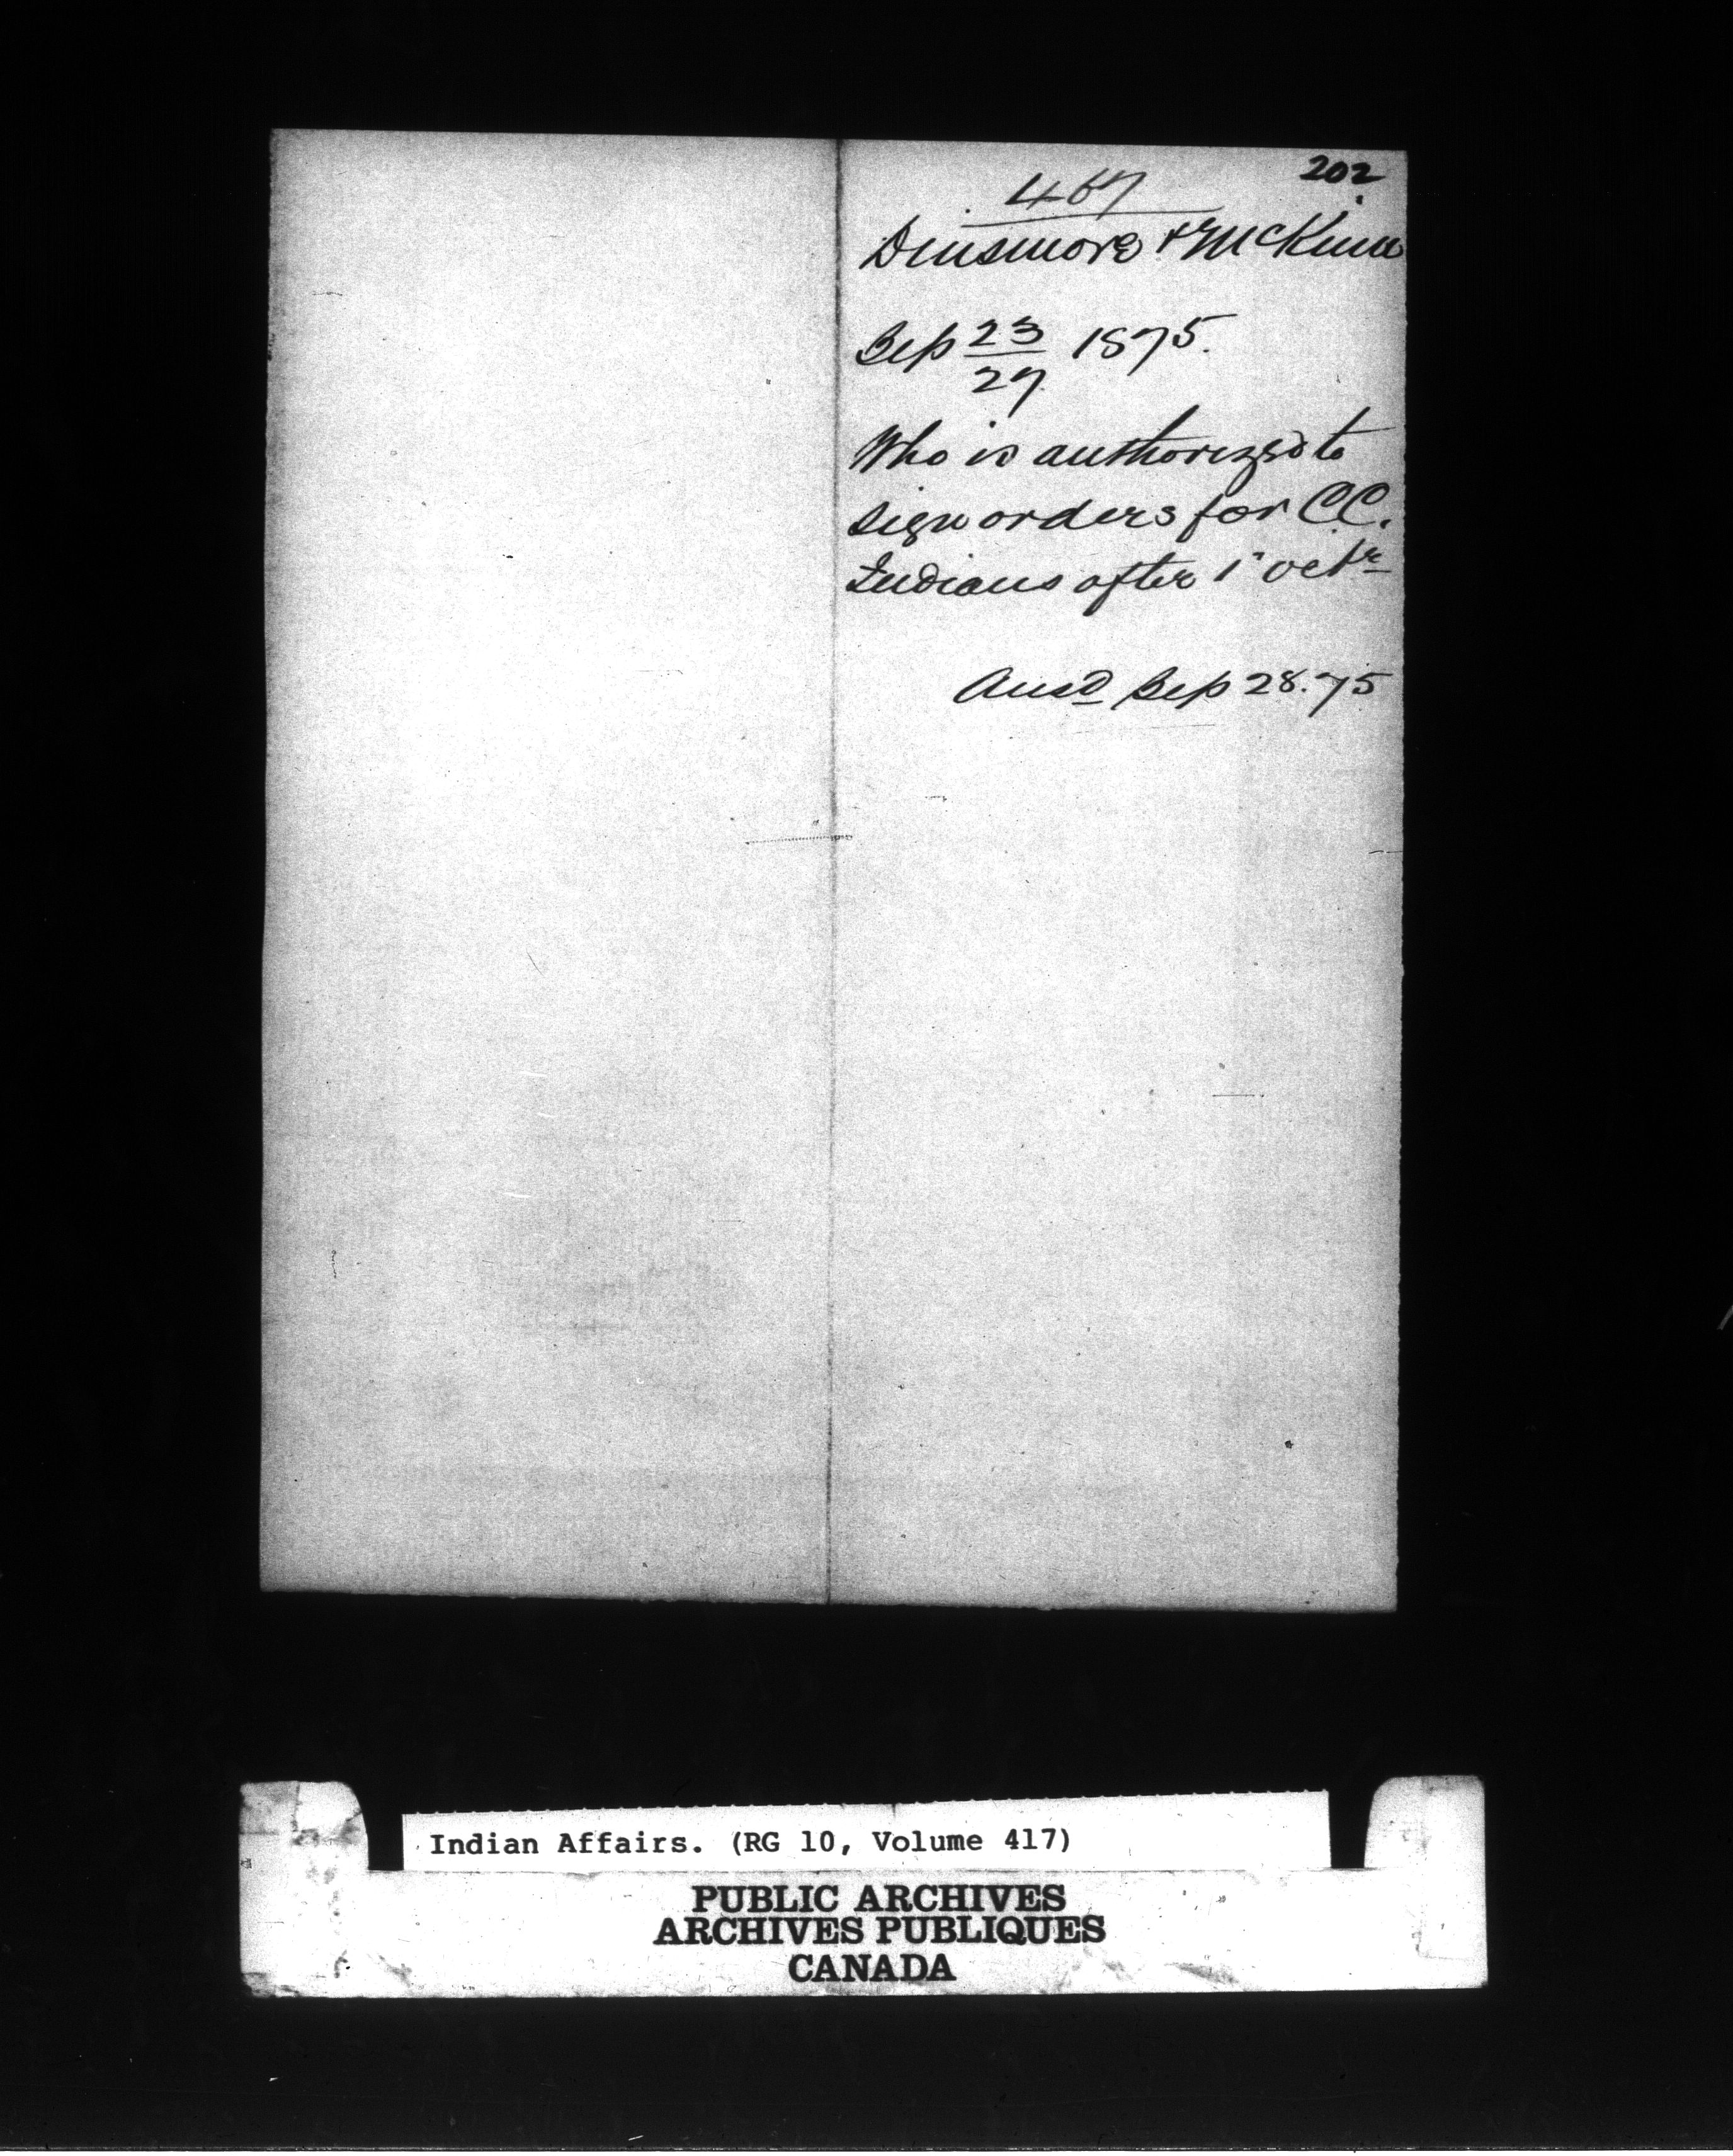 202
467
Dinsmore & McKinn
Sep 23/27 1875.
Who is authorized to
sign orders for C.C.
Indians after 1st Octr
Ansd Sep 28.75
Indian Affairs. (RG 10, Volume 417)
PUBLIC ARCHIVES
ARCHIVES PUBLIQUES
CANADA